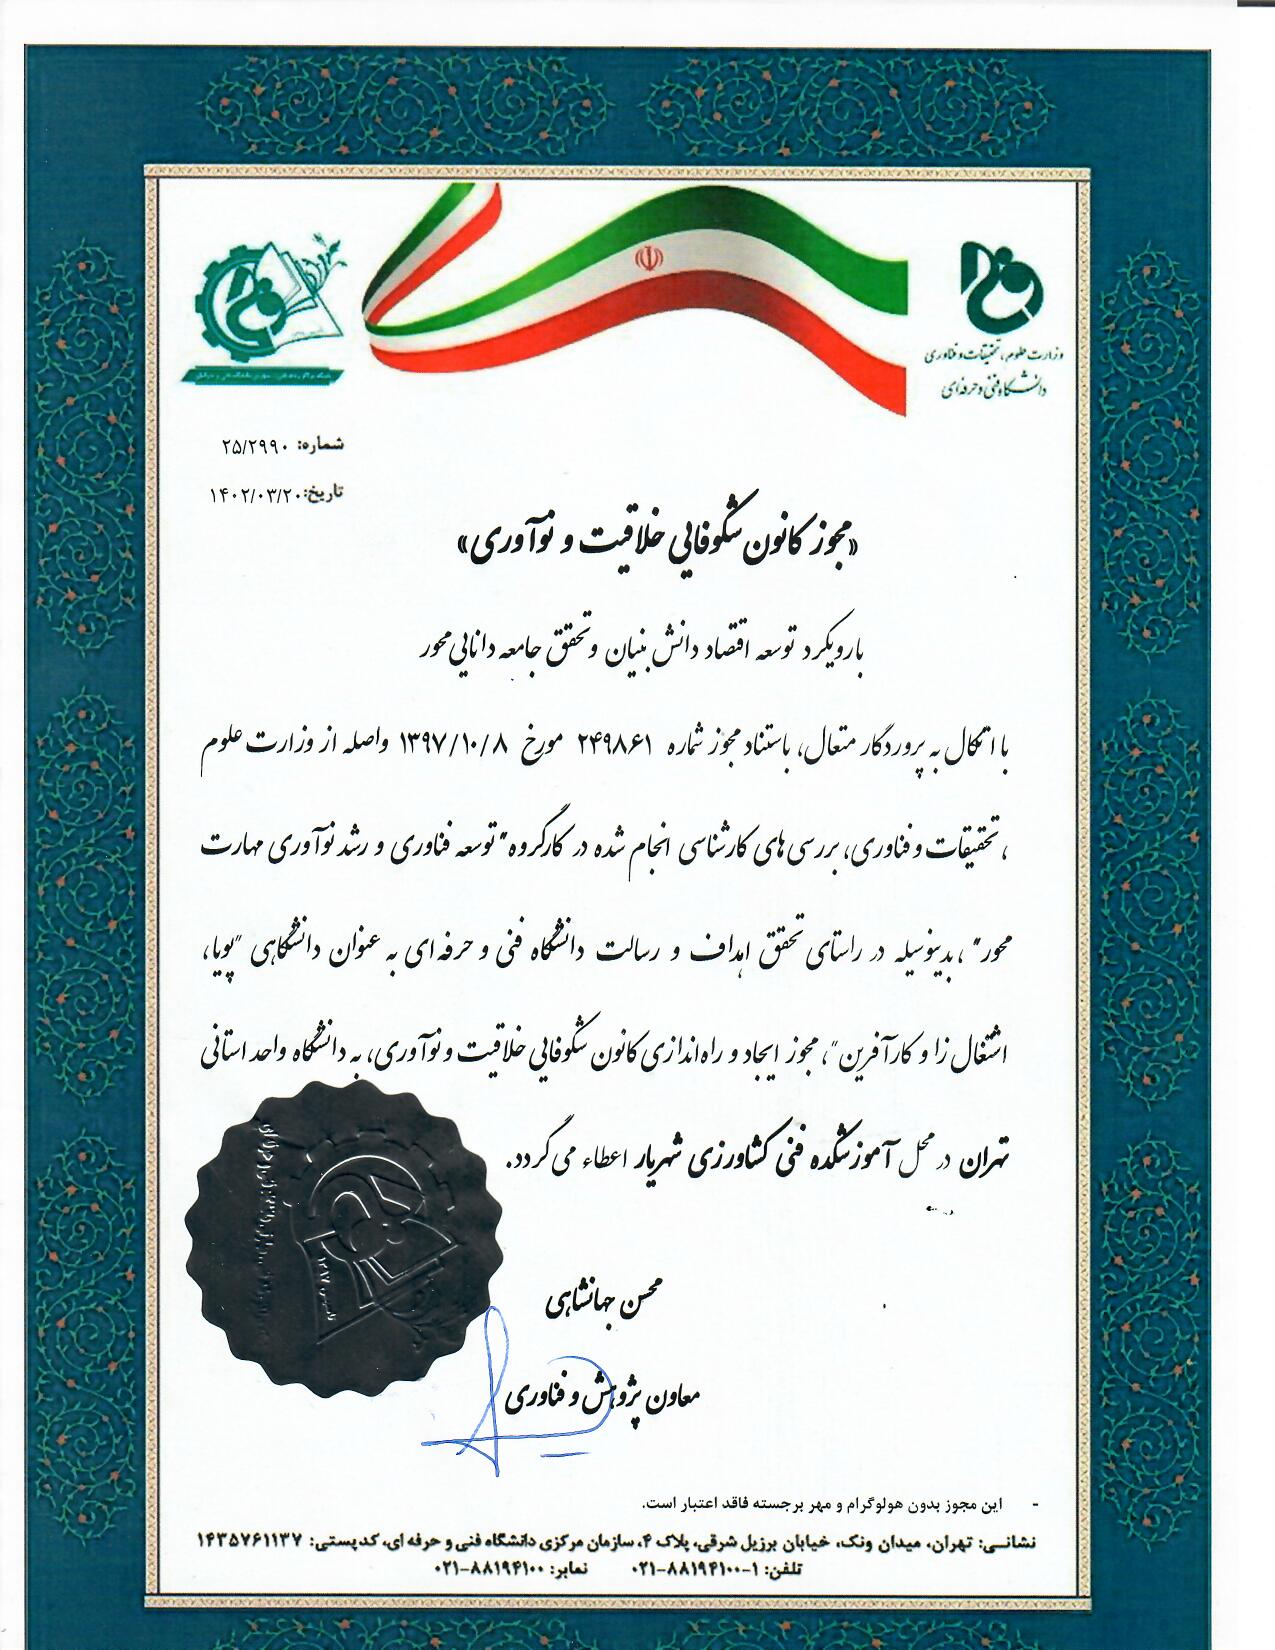 وزارت علوم، تحقیقات و فناوری
دانشگاه فنی و حرفه‌ای
شماره: ۲۵/۲۹۹۰
تاریخ: ۱۴۰۲/۰۳/۲۰
«مجوز کانون شکوفایی خلاقیت و نوآوری»
با رویکرد توسعه اقتصاد دانش بنیان و تحقق جامعه دانایی محور
با اتکال به پروردگار متعال، باستناد مجوز شماره ۲۴۹۸۶۱ مورخ ۱۳۹۷/۱۰/۸ واصله از وزارت علوم
، تحقیقات و فناوری، بررسی‌های کارشناسی انجام شده در کارگروه "توسعه فناوری و رشد نوآوری مهارت
محور"، بدینوسیله در راستای تحقق اهداف و رسالت دانشگاه فنی و حرفه ای به عنوان دانشگاهی "پویا،
اشتغال زا و کارآفرین"، مجوز ایجاد و راه‌اندازی کانون شکوفایی خلاقیت و نوآوری، به دانشگاه واحد استانی
تهران در محل آموزشکده فنی کشاورزی شهریار اعطاء می گردد.
محسن جهانشاهی
معاون پژوهش و فناوری
- این مجوز بدون هولوگرام و مهر برجسته فاقد اعتبار است.
نشانی: تهران، میدان ونک، خیابان برزیل شرقی، پلاک ۴، سازمان مرکزی دانشگاه فنی و حرفه ای، کدپستی: ۱۴۳۵۷۶۱۱۳۷
تلفن: ۱-۸۸۱۹۴۱۰۰-۰۲۱ نمابر: ۸۸۱۹۴۱۰۰-۰۲۱